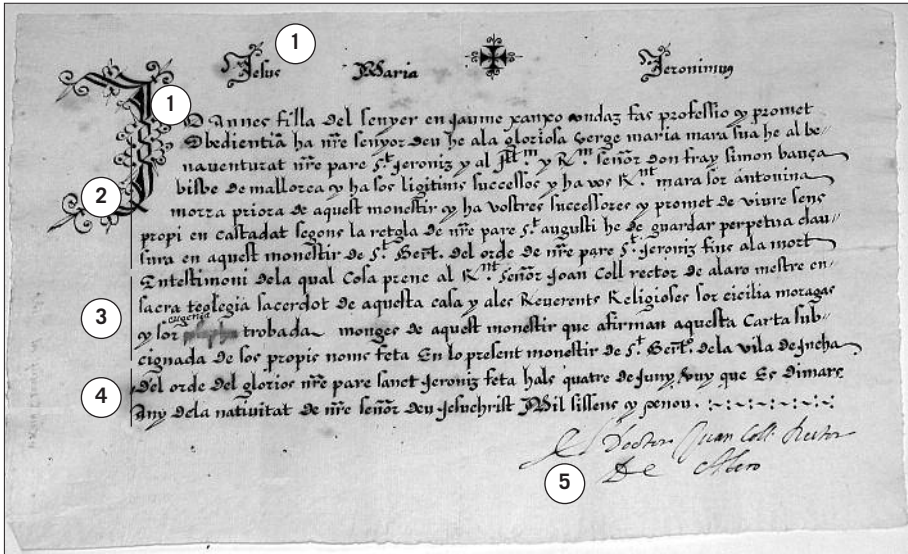 1
Jesus Maria Jeronimus
1
Jo Annes filla del senyer en Jaume xanxo ondaz fas professio y promet
Obedientiã ha nr̃e senyor deu he ala gloriosa verge maria mara sua he al be-
naventurat nr̃e pare s.t Jeroniz y al Ill.m y R.m señor don fray simon bauça
2
bisbe de mallorca y ha sos ligitims successos y ha vos R.nt mara sor antonina
morra priora de aquest monestir y ha vostres successores y promet de viure sens
propi en castadat segons la retgla de nr̃e pare s.t augusti he de guardar perpetua clau-
sura en aquest monestir de s.t Bert. del orde de nr̃e pare s.t Jeroniz fins ala mort
Entestimoni dela qual Cosa prenc al R.nt señor Joan Coll rector de alaro mestre en
sacra teologia sacerdot de aquesta casa y ales Reverents Religioses sor cicilia moragas
3
eugenia
y sor trobada monges de aquest monestir que afirman aquesta Carta sub-
cignada de sos propis noms feta En lo present monestir de s.t Bert.o dela vila de Incha
4
del orde del glorios nr̃e pare sanct Jeroniz feta hals quatre de Juny vuy que Es dimars
Any dela nativitat de nr̃e señor deu Jesuchrist Mil sissens y denou
Doctor Juan Coll Rector
5
De Alero